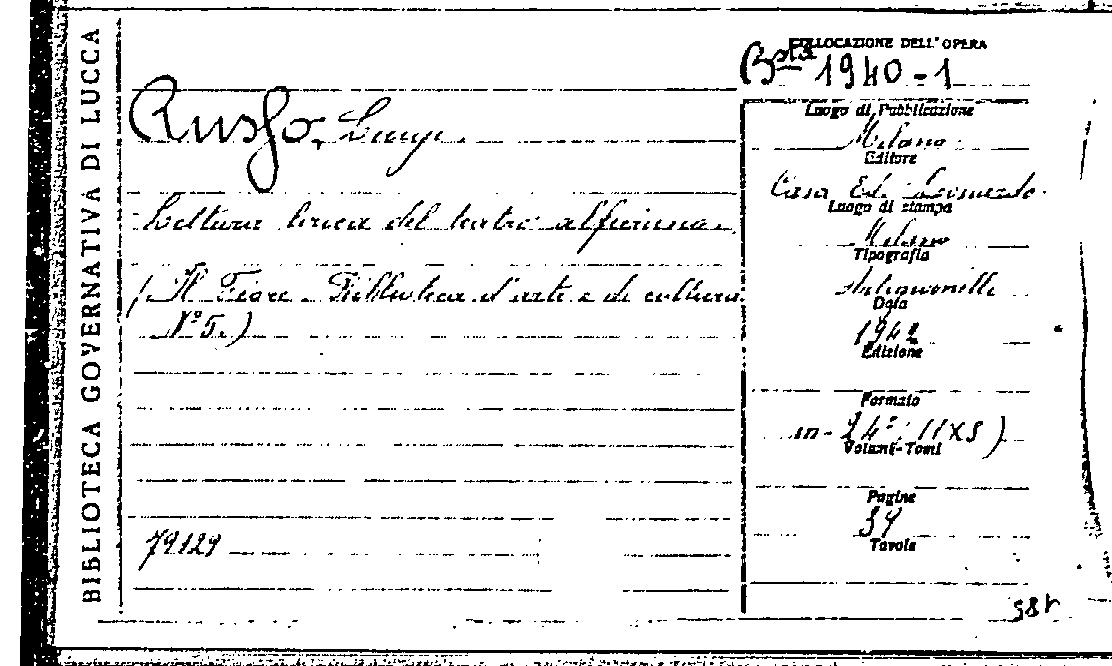 BIBLIOTECA GOVERNATIVA DI LUCCA
COLLOCAZIONE DELL'OPERA
Bsta 1940-1
Russo, Luigi.
Lettura lirica del teatro alfieriano.
(Il Fiore - Biblioteca d'arte e di cultura
N° 5.)
79129
Luogo di Pubblicazione
Milano
Editore
Casa Ed. Leonardo.
Luogo di stampa
Milano
Tipografia
Data
1942
Edizione
Formato
in-24° (11X8)
Volumi-Tomi
Pagine
39
Tavole